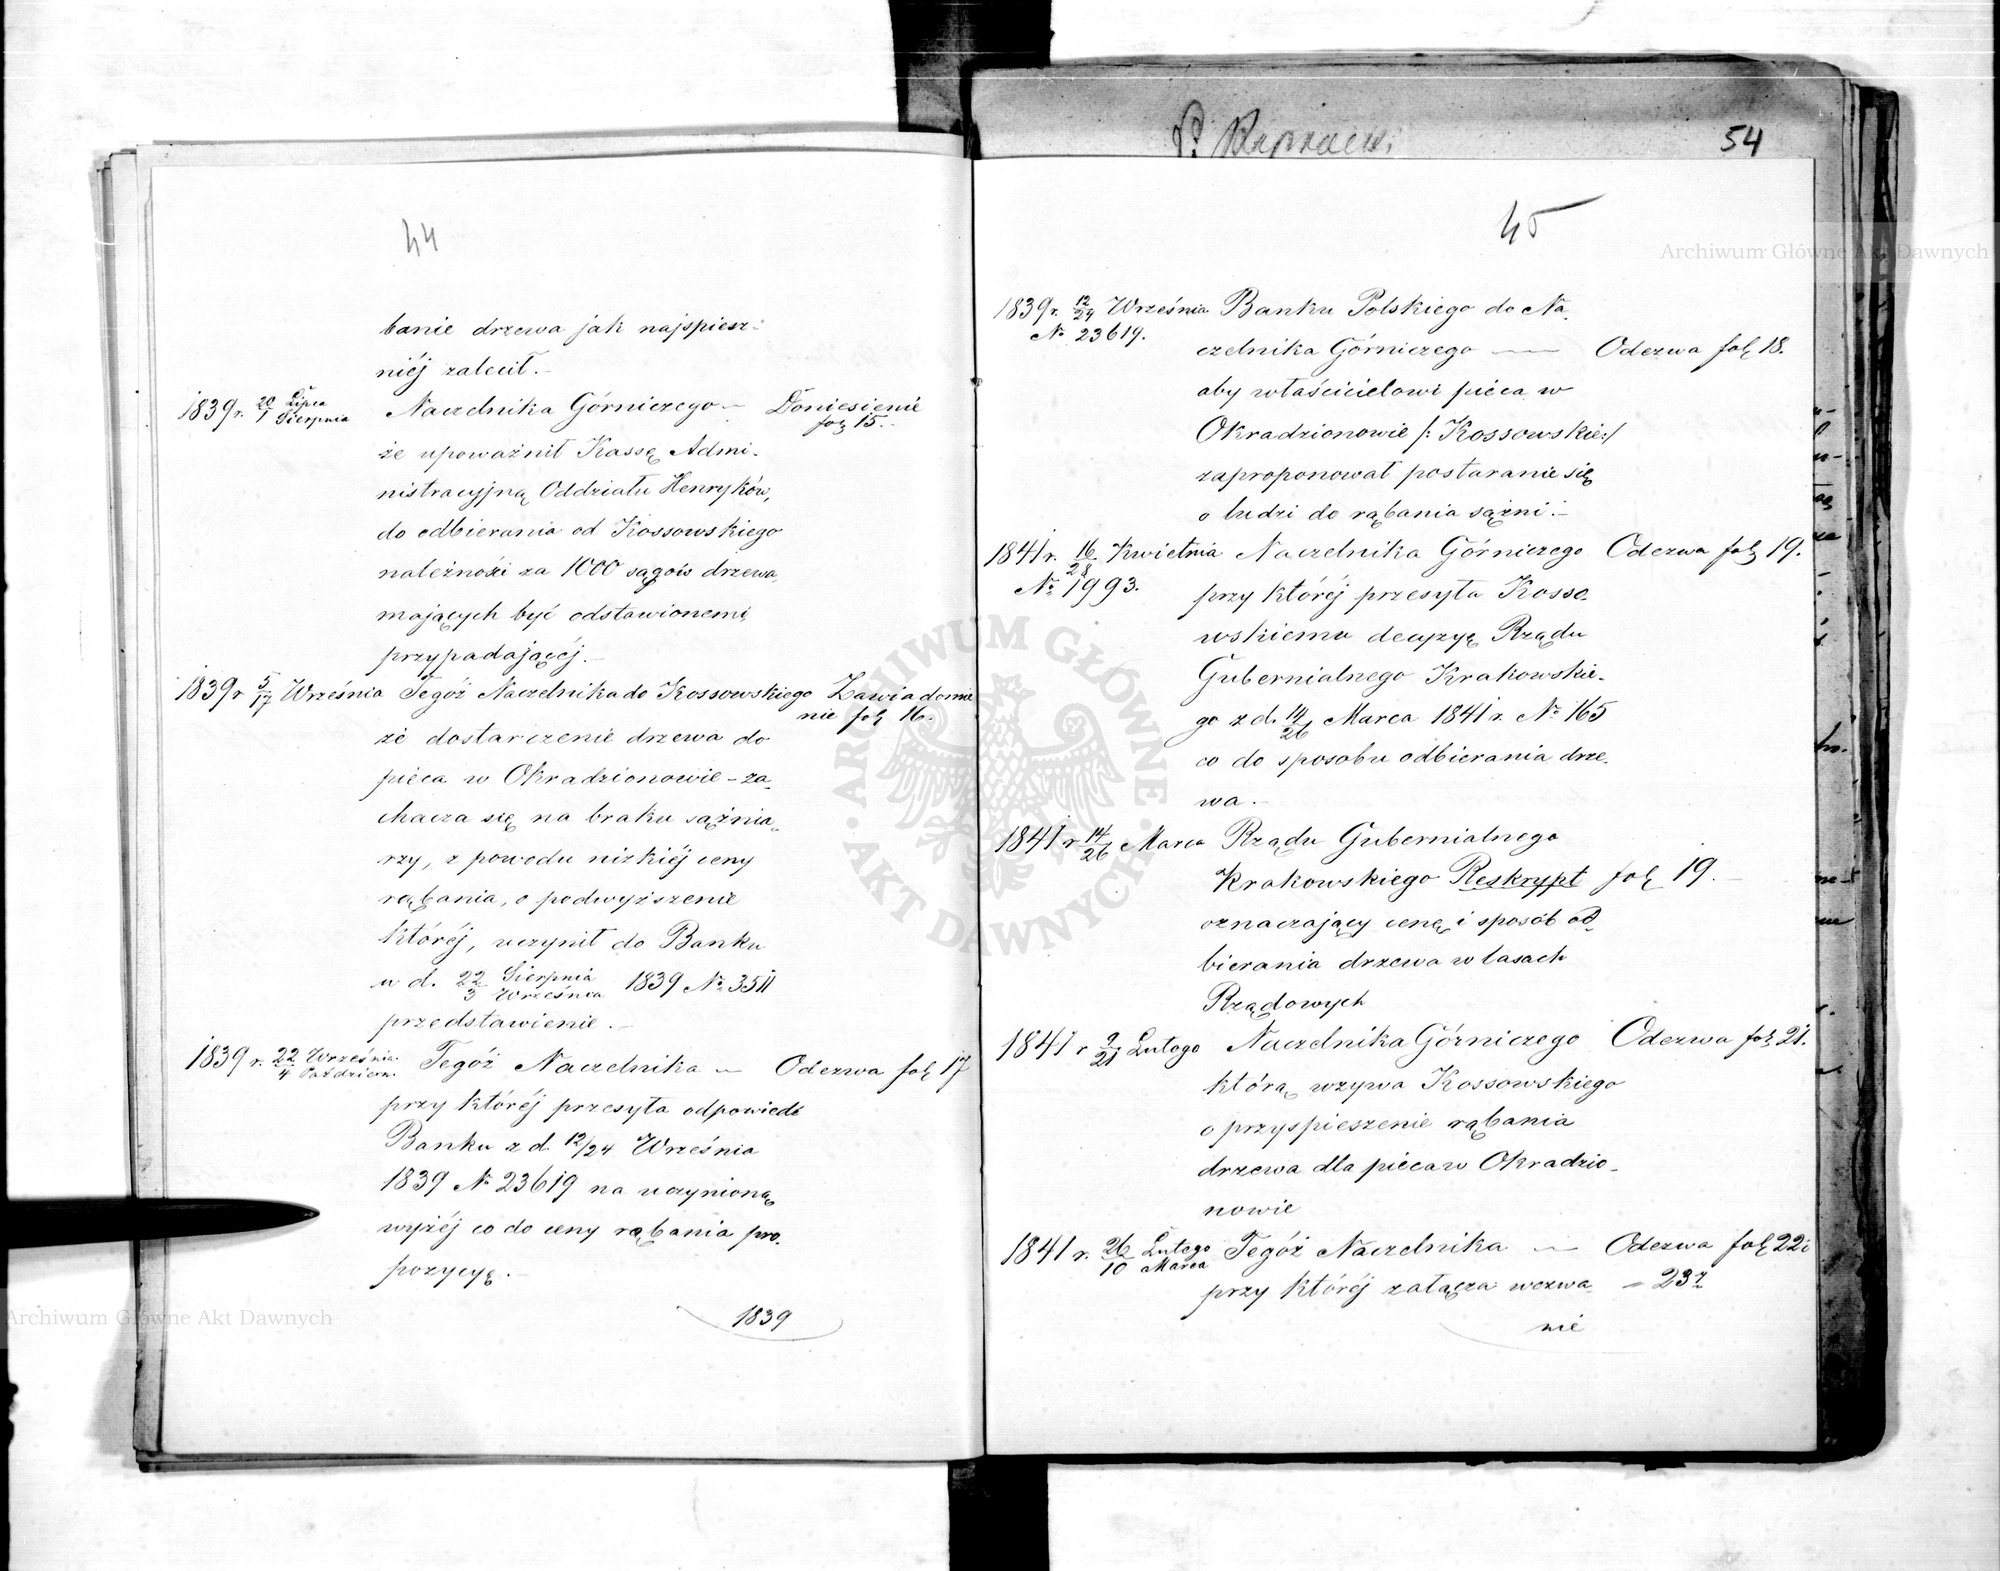 44
banie drzewa jak najspiesz-
niéj zalecił.-
1839 r. 20/1 Lipca/Sierpnia Naczelnika Górniczego — Doniesienie
fol 15.
że upoważnił Kassę Admi-
nistracyjną Oddziału Henryków,
do odbierania od Kossowskiego
należności za 1000 sągów drzewa
mających być odstawionemi
przypadającéj.-
1839 r 5/17 Września Tegóż Naczelnika do Kossowskiego Zawiadomie
nie fol 16.
że dostarczenie drzewa do
pieca w Okradzionowie - za-
chacza się na braku sążnia-
rzy, z powodu nizkiéj ceny
rąbania, o podwyższenie
któréj, uczynił do Banku
w d. 22/3 Sierpnia/Września 1839 № 3511
przedstawienie.-
1839 r. 22/4 Września/Paździer. Tegóż Naczelnika — Odezwa fol 17
przy któréj przesyła odpowiedź
Banku z d. 12/24 Września
1839 № 23619 na uczynioną
wyżéj co do ceny rąbania pro-
pozycyę.-
1839
54
45
1839 r. 12/24 Września Banku Polskiego do Na-
№ 23619.
czelnika Górniczego — Odezwa fol 18.
aby właścicielowi pieca w
Okradzionowie /: Kossowskie:/
zaproponował postaranie się
o ludzi do rąbania sążni.-
1841 r. 16/28 Kwietnia Naczelnika Górniczego Odezwa fol 19.
№ 1993.
przy któréj przesyła Kosso-
wskiemu decyzyę Rządu
Gubernialnego Krakowskie-
go z d. 14/26 Marca 1841 r. № 165
co do sposobu odbierania drze-
wa.-
1841 r 14/26 Marca Rządu Gubernialnego
Krakowskiego Reskrypt fol 19.-
oznaczający cenę i sposób od-
bierania drzewa w lasach
Rządowych
1841 r 9/21 Lutego Naczelnika Górniczego Odezwa fol 21.
którą wzywa Kossowskiego
o przyspieszenie rąbania
drzewa dla pieca w Okradzio-
nowie
1841 r. 26/10 Lutego/Marca Tegóż Naczelnika — Odezwa fol 22 i
przy któréj załącza wezwa- 23
nie
Archiwum Główne Akt Dawnych
Archiwum Główne Akt Dawnych
ARCHIWUM GŁÓWNE · AKT DAWNYCH ·